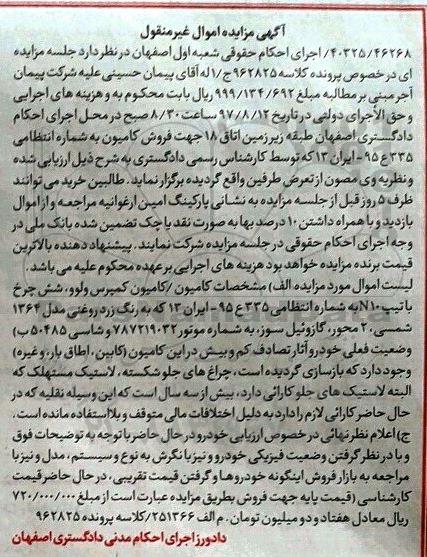 آگهی مزایده اموال غیر منقول
۴۰۳۲۵/۴۶۲۶۸/ اجرای احکام حقوقی شعبه اول اصفهان در نظر دارد جلسه مزایده
ای در خصوص پرونده کلاسه ۹۶۲۸۲۵ ج/۱ له آقای پیمان حسینی علیه شرکت پیمان
آجر مبنی بر مطالبه مبلغ ۹۹۹/۱۳۴/۶۹۲ ریال بابت محکوم به و هزینه های اجرایی
و حق الأجرای دولتی در تاریخ ۹۷/۸/۱۲ ساعت ۸/۳۰ صبح در محل اجرای احکام
دادگستری اصفهان طبقه زیر زمین اتاق ۱۸ جهت فروش کامیون به شماره انتظامی
۳۳۵ ع ۹۵ - ایران ۱۳ که توسط کارشناس رسمی دادگستری به شرح ذیل ارزیابی شده
و نظریه وی مصون از تعرض طرفین واقع گردیده برگزار نماید. طالبین خرید می توانند
ظرف ۵ روز قبل از جلسه مزایده به نشانی پارکینگ امین ارغوانیه مراجعه و از اموال
بازدید و با همراه داشتن ۱۰ درصد بها به صورت نقد یا چک تضمین شده بانک ملی در
وجه اجرای احکام حقوقی در جلسه مزایده شرکت نمایند. پیشنهاد دهنده بالاترین
قیمت برنده مزایده خواهد بود هزینه های اجرایی بر عهده محکوم علیه می باشد.
لیست اموال مورد مزایده الف) مشخصات کامیون /کامیون کمپرس ولوو، شش چرخ
با تیپ N۱۰ به شماره انتظامی ۳۳۵ ع ۹۵ - ایران ۱۳ که به رنگ زرد روغنی مدل ۱۳۶۴
شمسی، ۲ محور، گازوئیل سوز، به شماره موتور ۷۸۷۲۱۹۰۳۲ و شاسی ۵۰۴۸۵ ب)
وضعیت فعلی خودرو آثار تصادف کم و بیش در این کامیون (کابین، اطاق بار، و غیره)
وجود دارد که بازسازی گردیده است، چراغ های جلو شکسته، لاستیک مستهلک که
البته لاستیک های جلو کارائی دارد، بیش از سه سال است که این وسیله نقلیه که در
حال حاضر کارائی لازم را دارد به دلیل اختلافات مالی متوقف و بلااستفاده مانده است.
ج) اعلام نظر نهائی در خصوص ارزیابی خودرو در حال حاضر با توجه به توضیحات فوق
و با در نظر گرفتن وضعیت فیزیکی خودرو و نیز با نگرش به نوع و سیستم، مدل و نیز با
مراجعه به بازار فروش اینگونه خودروها و گرفتن قیمت تقریبی، در حال حاضر قیمت
کارشناسی (قیمت پایه جهت فروش بطریق مزایده عبارت است از مبلغ ۷۲۰/۰۰۰/۰۰۰
ریال معادل هفتاد و دو میلیون تومان. م الف ۲۵۱۳۶۶/کلاسه پرونده ۹۶۲۸۲۵
دادورز اجرای احکام مدنی دادگستری اصفهان